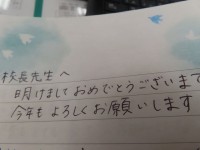 校長先生へ
明けましておめでとうございます
今年もよろしくお願いします